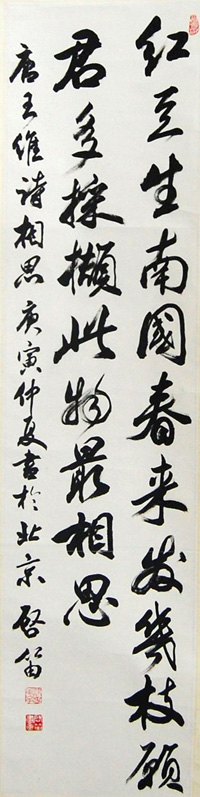 红豆生南國春来发幾枝願
君多採擷此物最相思
唐王維詩相思庚寅仲夏書於北京啓笛